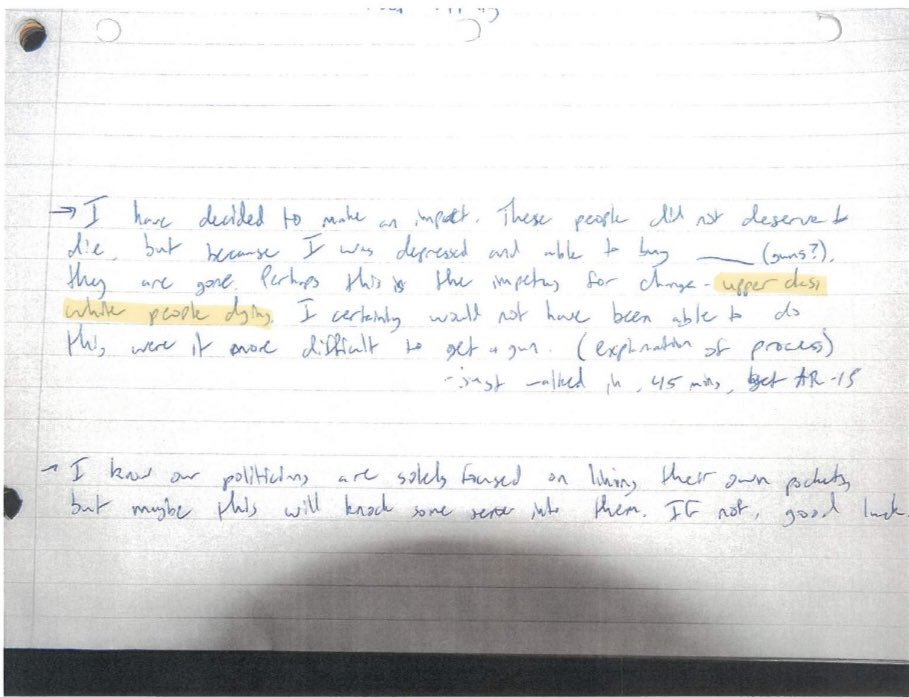 → I have decided to make an impact. These people did not deserve to
die, but because I was depressed and able to buy ____ (guns?),
they are gone. Perhaps this is the impetus for change - upper class
white people dying. I certainly would not have been able to do
this, were it more difficult to get a gun. (explanation of process)
- just walked in, 45 mins, get AR-15
→ I know our politicians are solely focused on lining their own pockets,
but maybe this will knock some sense into them. If not, good luck.